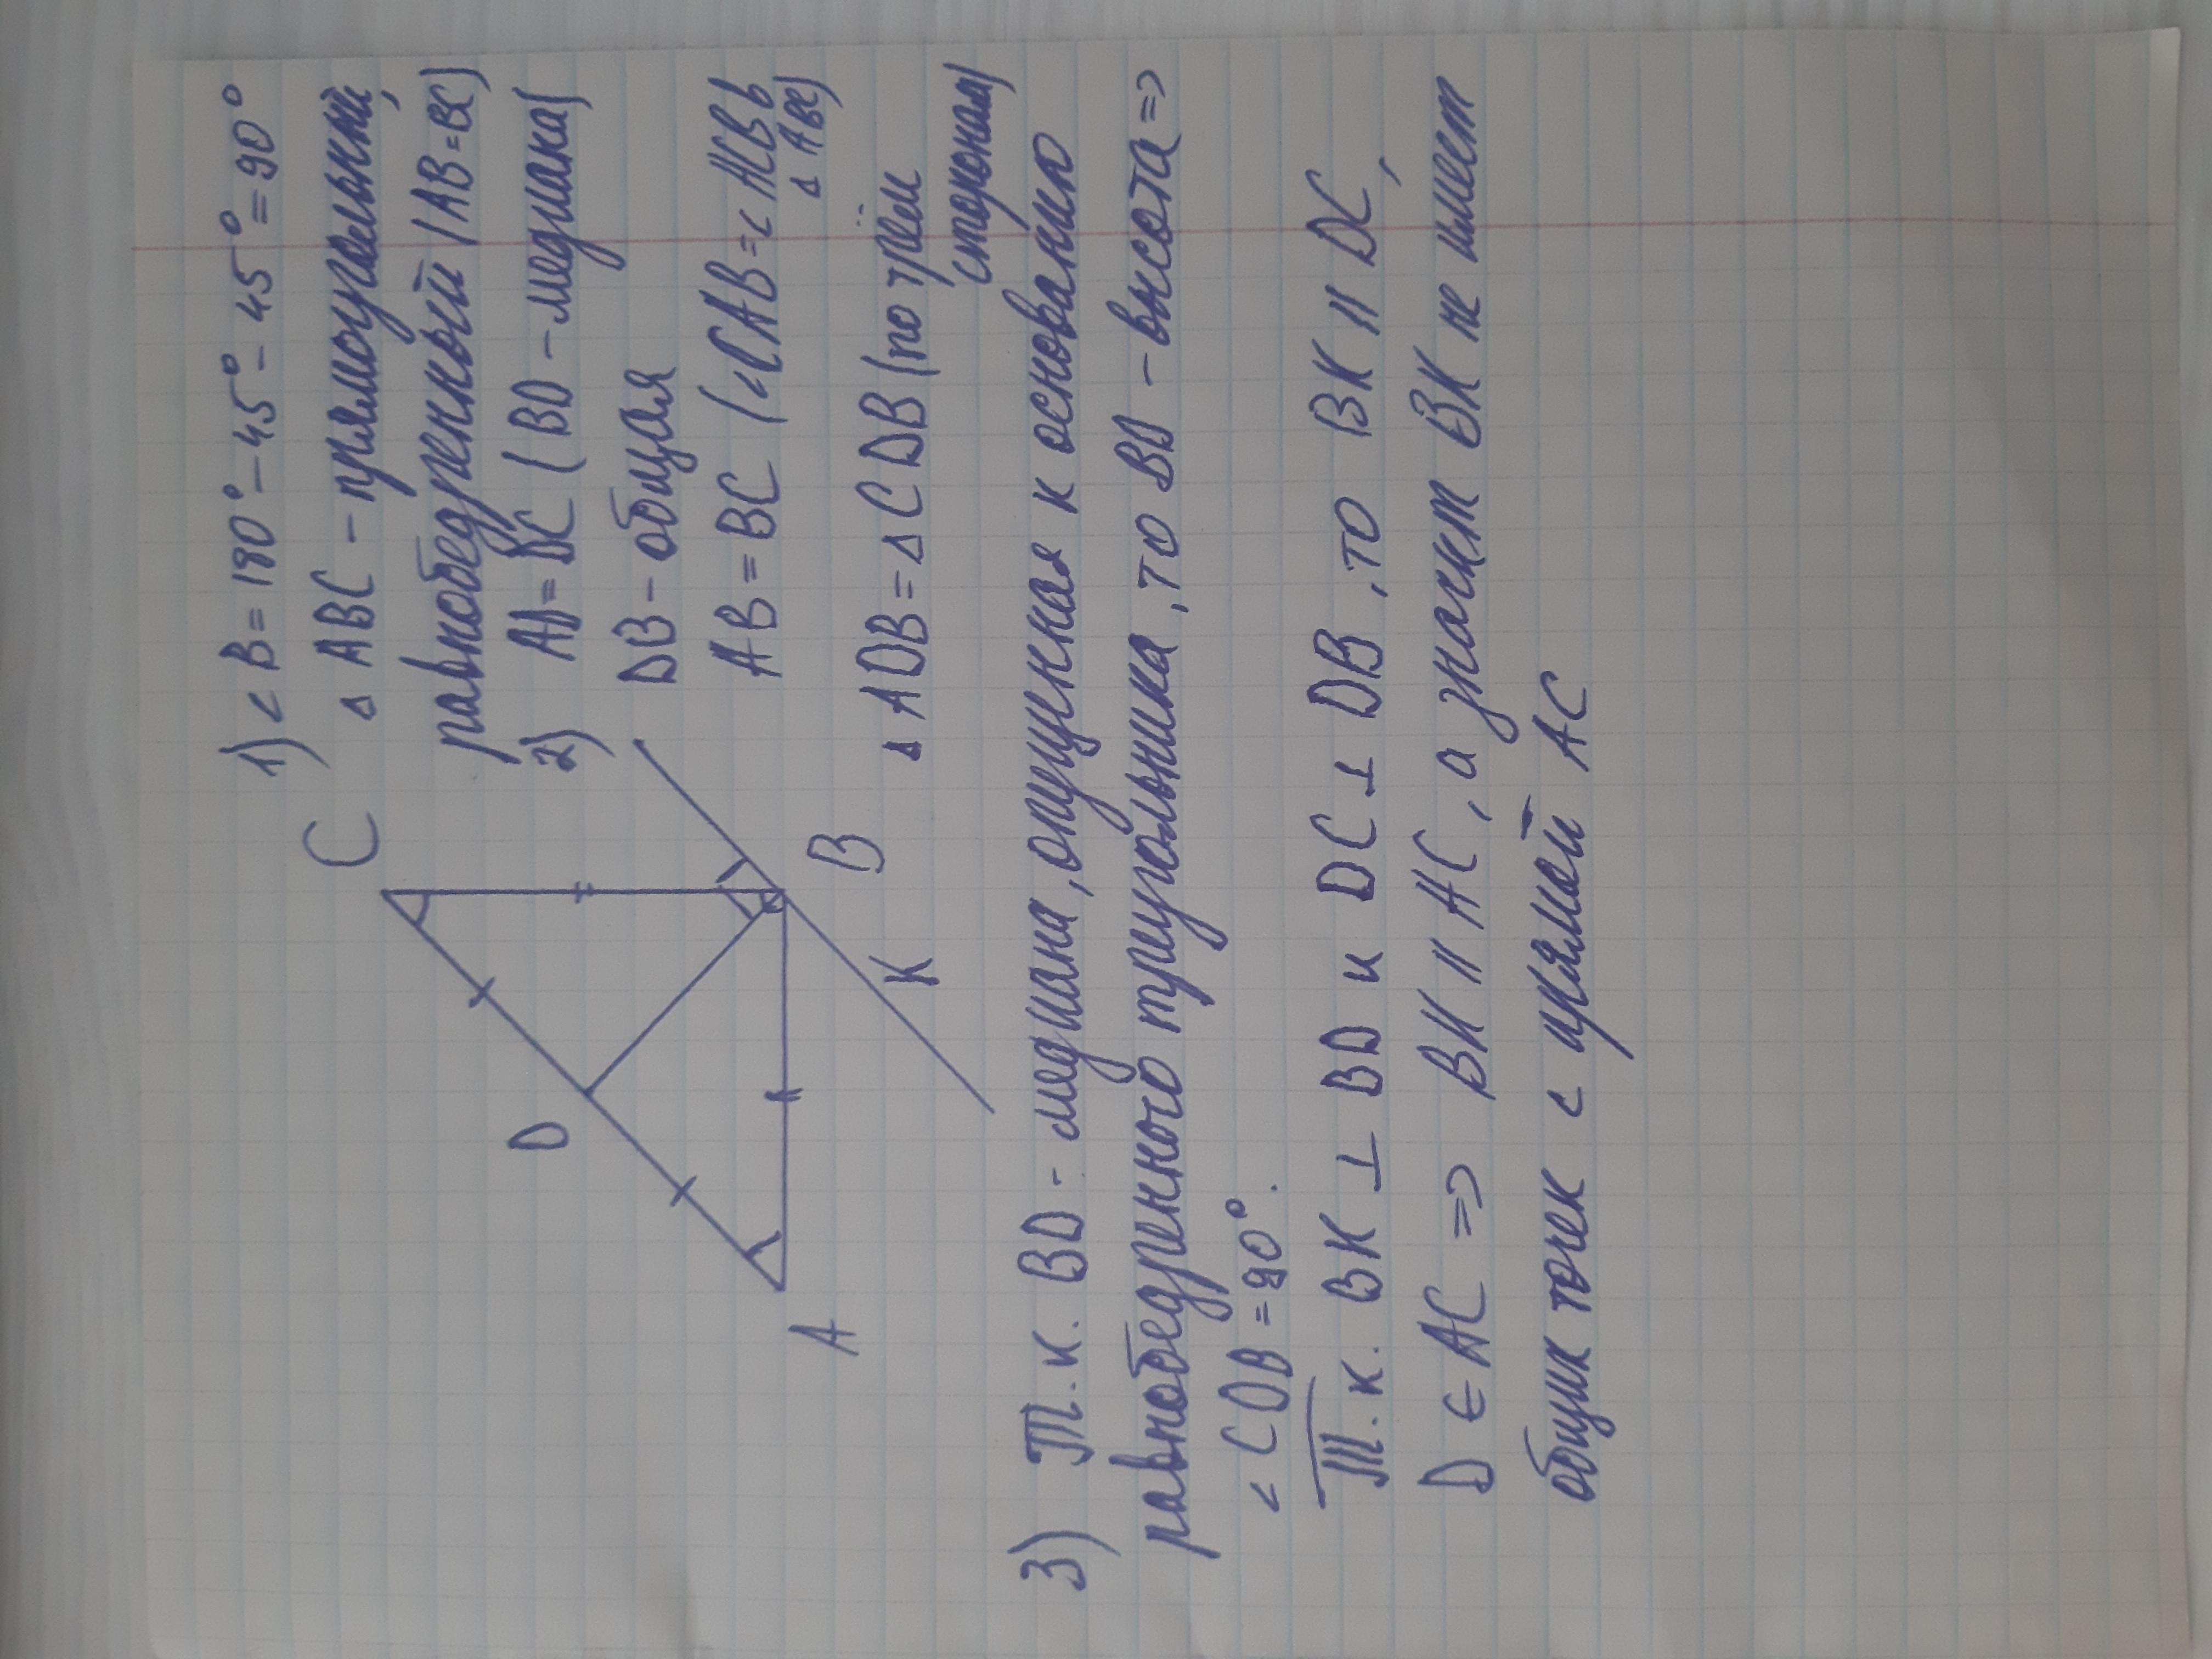 C
D
A
B
K
1) < B = 180° - 45° - 45° = 90°
△ ABC - прямоугольный,
равнобедренный (AB = BC)
2) AD = DC (BD - медиана)
DB - общая
AB = BC (<CAB = < ACB в
△ ABC)
△ ADB = △ CDB (по трём
сторонам)
3) Т.к. BD - медиана, опущенная к основанию
равнобедренного треугольника, то BD - высота =>
< CDB = 90°.
Т.к. BK ⊥ BD и DC ⊥ DB, то BK || DC,
D ∈ AC => BK || AC, а значит BK не имеет
общих точек с прямой AC